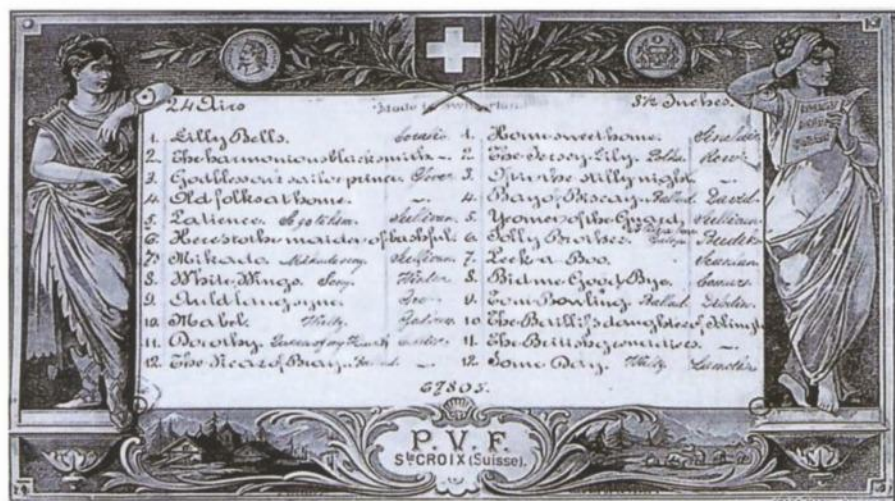 24 Airs
Made in Switzerland
8½ Inches.
1. Lilly Bells.
2. The harmonious blacksmith -.
3. God bless our sailor prince.
4. Old folks at home. -
5. Patience. Sullivan
6. Here's to the maiden of bashful.
7. Mikado Sullivan
8. White Wings. Song. Winter
9. Auld lang syne.
10. Mabel. Waltz
11. Dorothy. Queen of my Heart
12. The Vicar of Bray. -
1. Home sweet home.
2. The Jersey Lily. Polka.
3. Oft in the stilly night -
4. Bay of Biscay. Ballad. David.
5. Yeomen of the Guard. Sullivan
6. Jolly Brothers.
7. Peek a Boo.
8. Bid me Good Bye.
9. Tom Bowling. Ballad. Dibdin
10. The Bailiff's daughter of Islington
11. The British grenadiers. -
12. Some Day. Waltz
67805.
P. V. F.
Ste CROIX (Suisse).